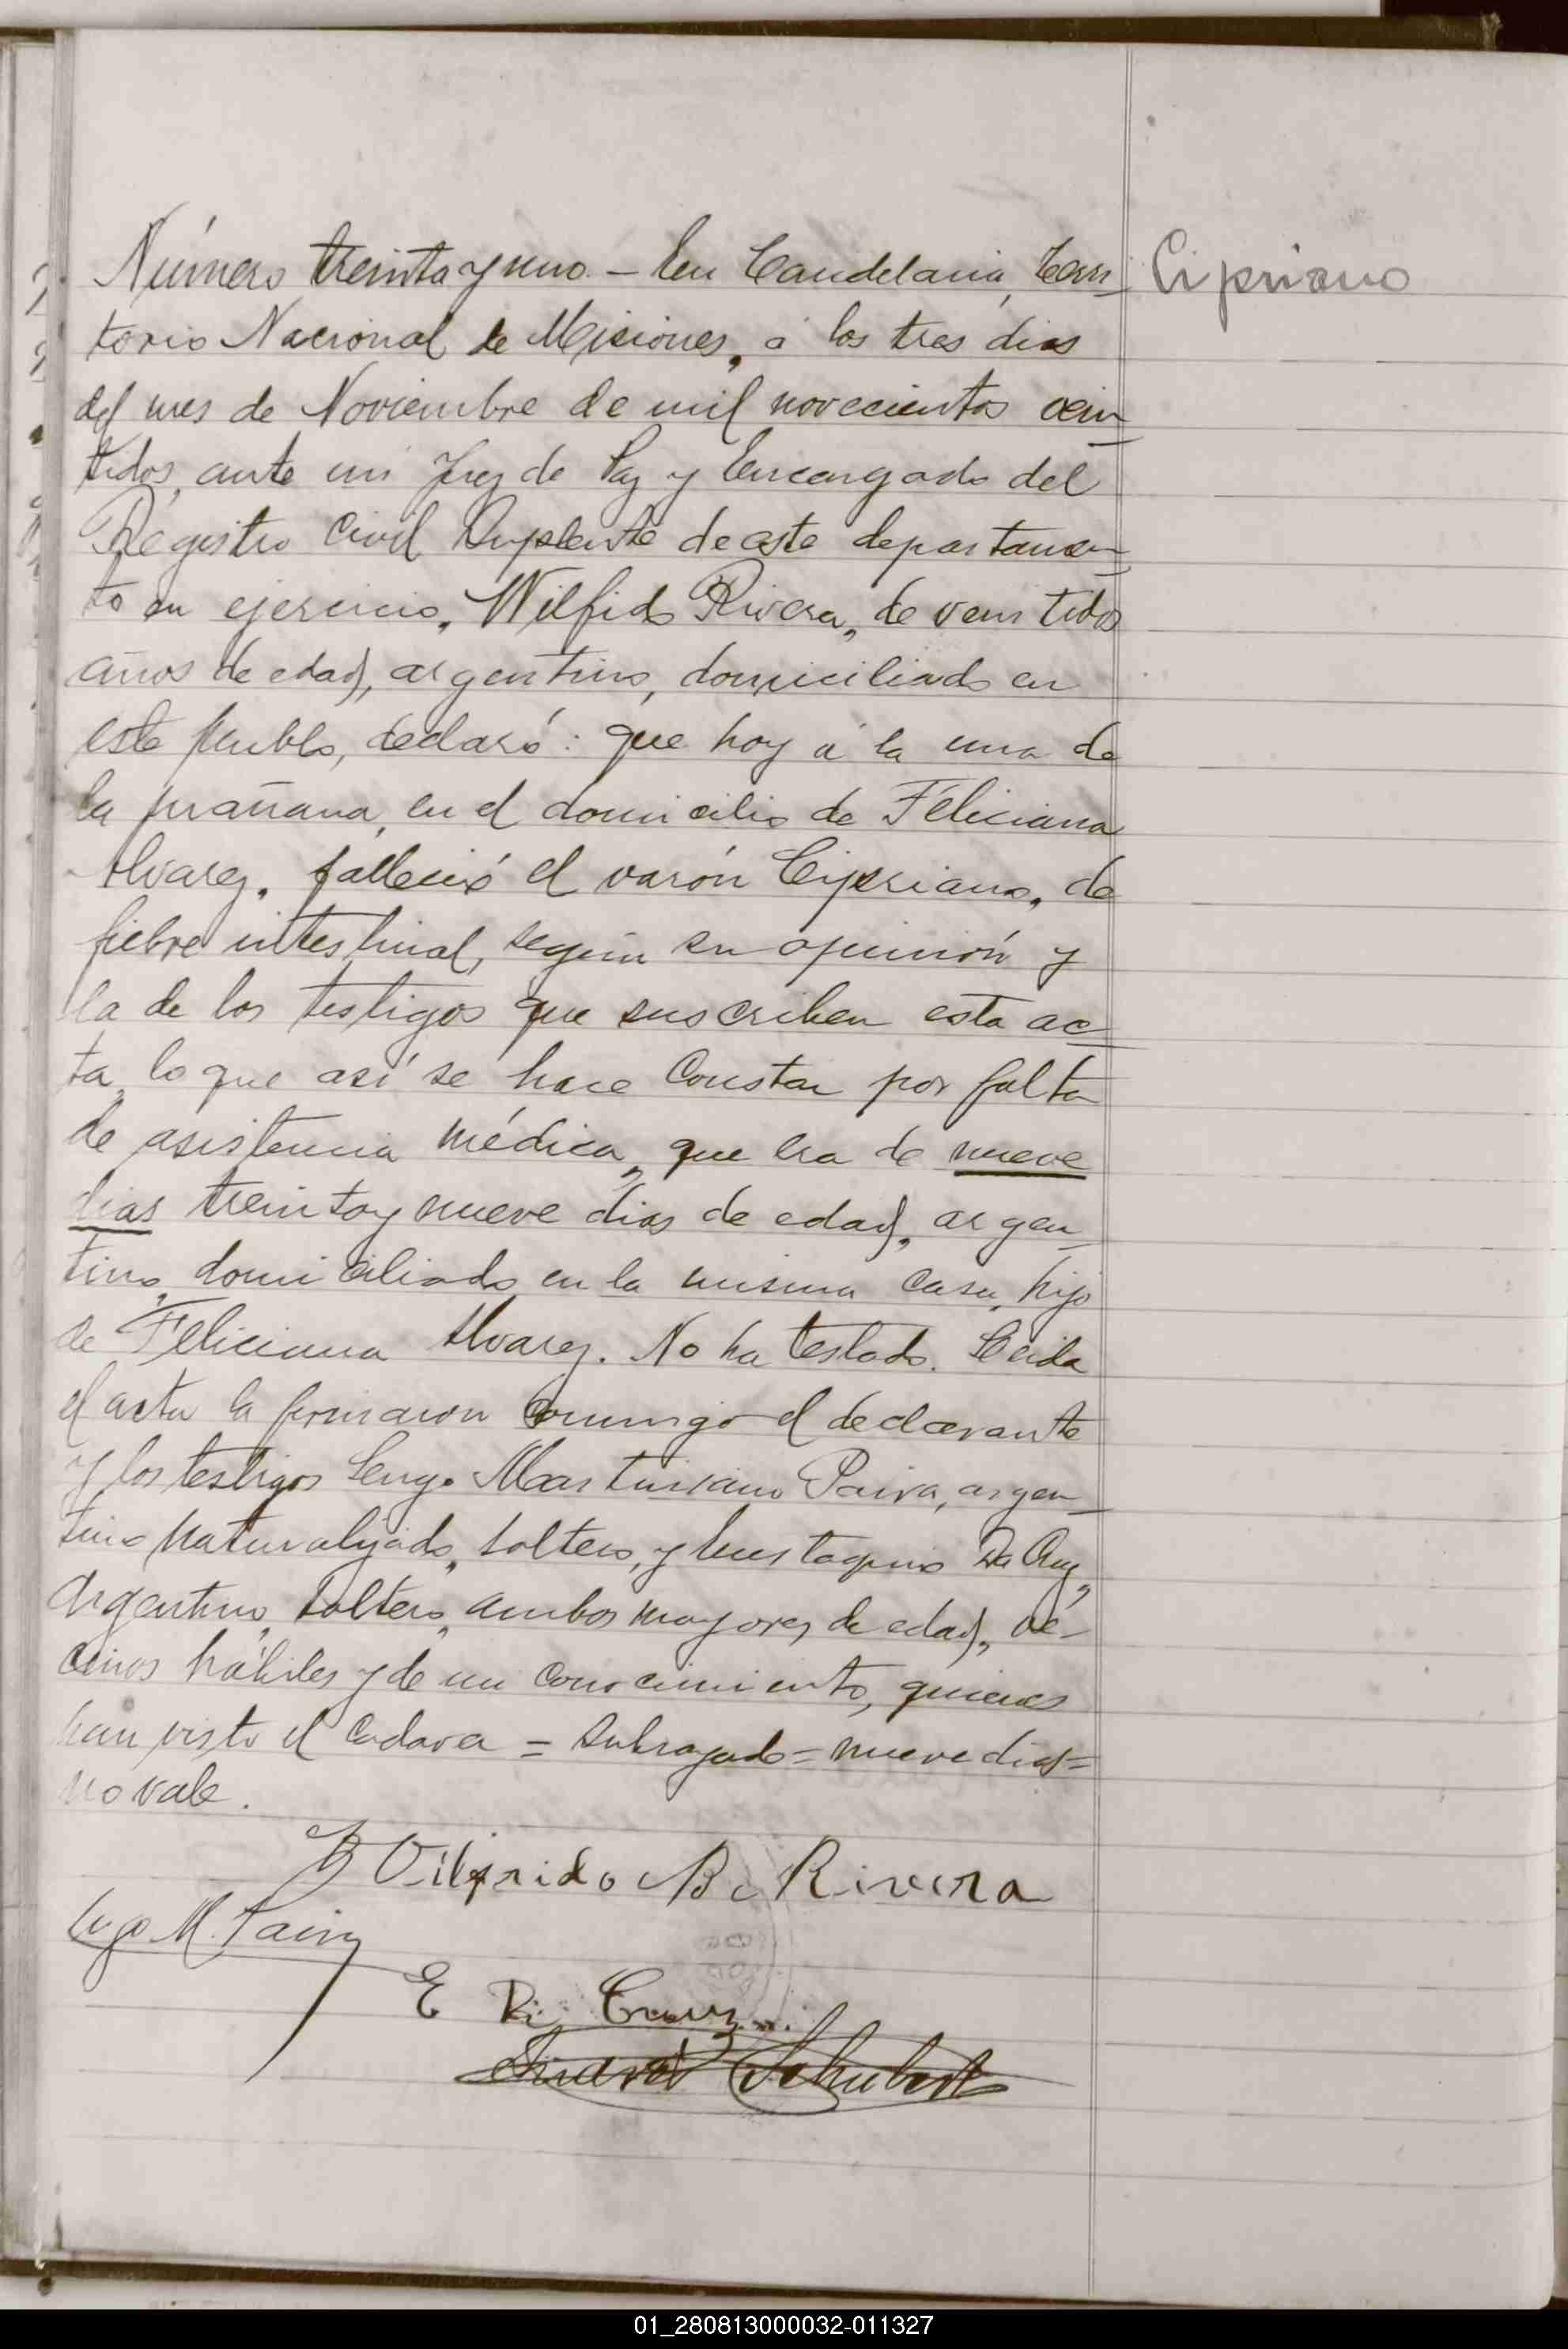 Número treinta y uno. – En Candelaria, Terri-
Cipriano
torio Nacional de Misiones, á los tres dias
del mes de Noviembre de mil novecientos vein-
tidos, ante mi Juez de Paz y Encargado del
Registro Civil Suplente de este departamen-
to en ejercicio, Wilfido Rivera, de veintidos
años de edad, argentino, domiciliado en
este pueblo, declaró: que hoy á la una de
la mañana, en el domicilio de Feliciana
Alvarez, falleció el varón Cipriano, de
fiebre intestinal, según su opinión y
la de los testigos que suscriben esta ac-
ta, lo que así se hace constar por falta
de asistencia médica, que era de nueve
dias treinta y nueve dias de edad, argen-
tino, domiciliado en la misma casa, hijo
de Feliciana Alvarez. No ha testado. Leida
el acta la firmaron conmigo el declarante
y los testigos Martiniano Paiva, argen-
tino naturalizado, soltero, y Eustaquio Da Cruz,
Argentino, soltero, ambos mayores de edad, ve-
cinos hábiles y de mi conocimiento, quienes
han visto el cadaver = Subrayado = nueve dias =
no vale.
Wilfrido B. Rivera
M. Paiva
E Di Cruz
Schubert
01_280813000032-011327